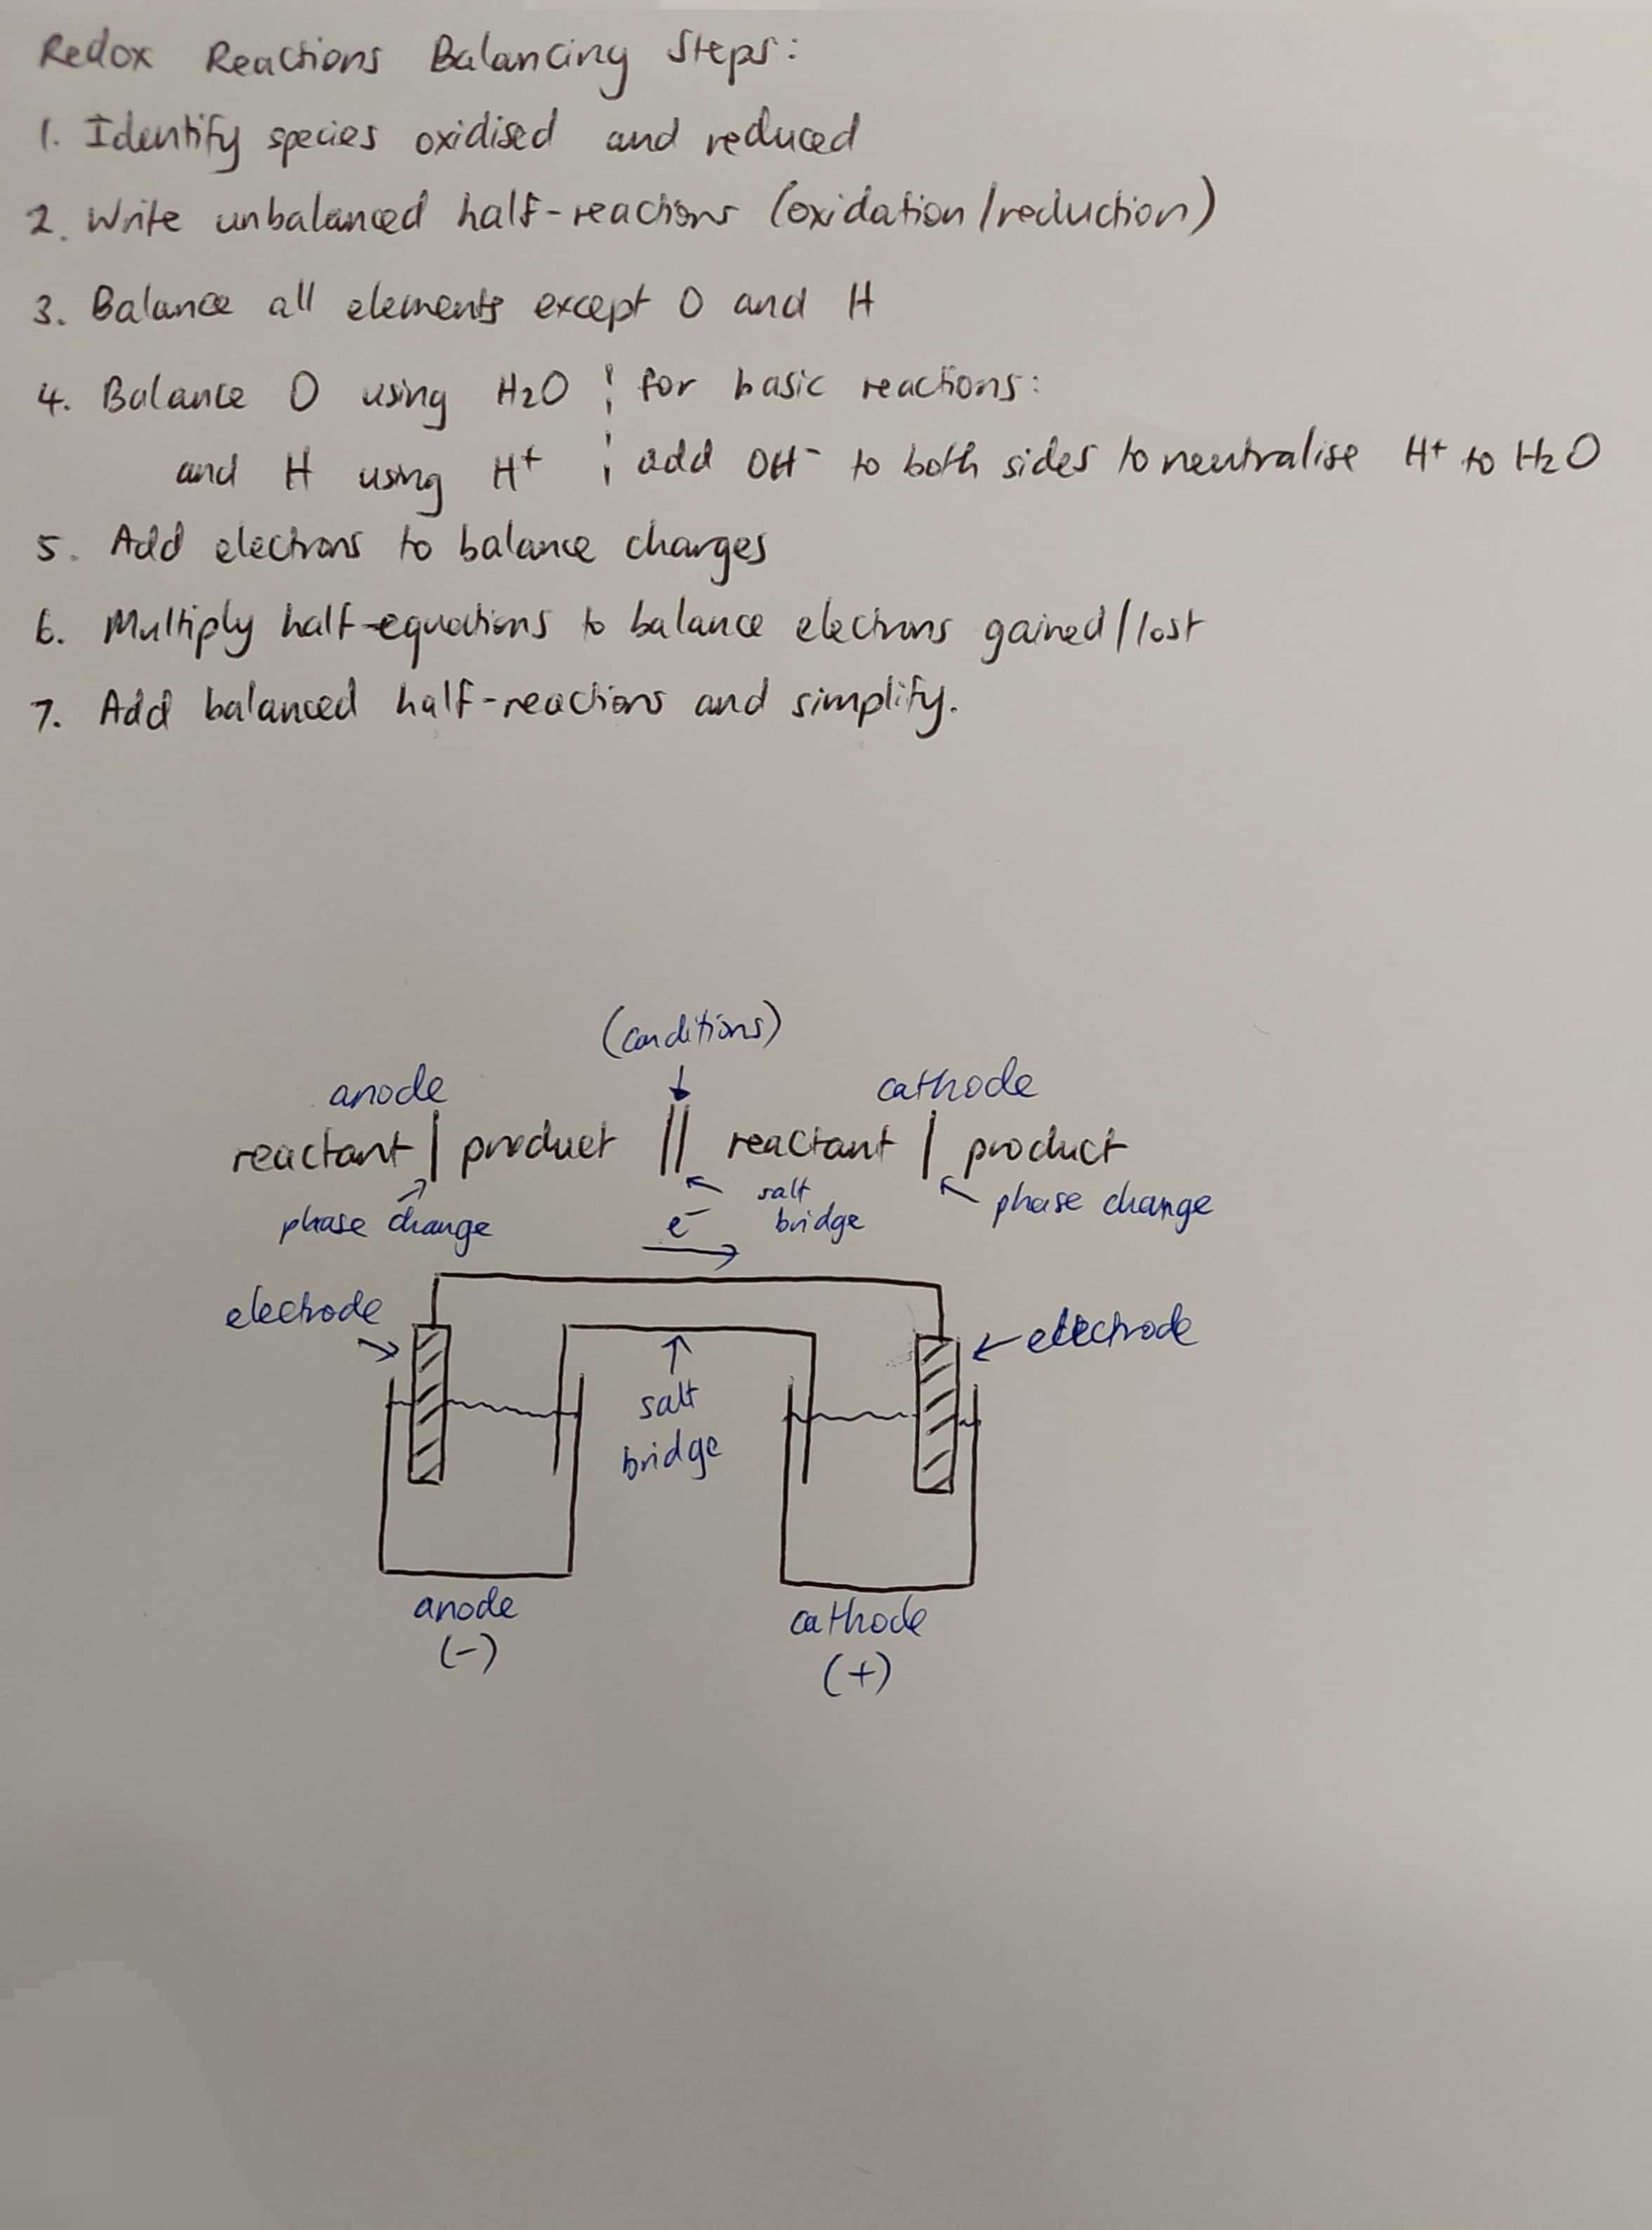 Redox Reactions Balancing Steps:
1. Identify species oxidised and reduced
2. Write unbalanced half-reactions (oxidation/reduction)
3. Balance all elements except O and H
4. Balance O using H₂O ¦ for basic reactions:
and H using H⁺ ¦ add OH⁻ to both sides to neutralise H⁺ to H₂O
5. Add electrons to balance charges
6. Multiply half-equations to balance electrons gained/lost
7. Add balanced half-reactions and simplify.
(conditions)
↓
anode cathode
reactant | product || reactant | product
phase change salt bridge phase change
e⁻
→
electrode electrode
salt
bridge
anode cathode
(-) (+)